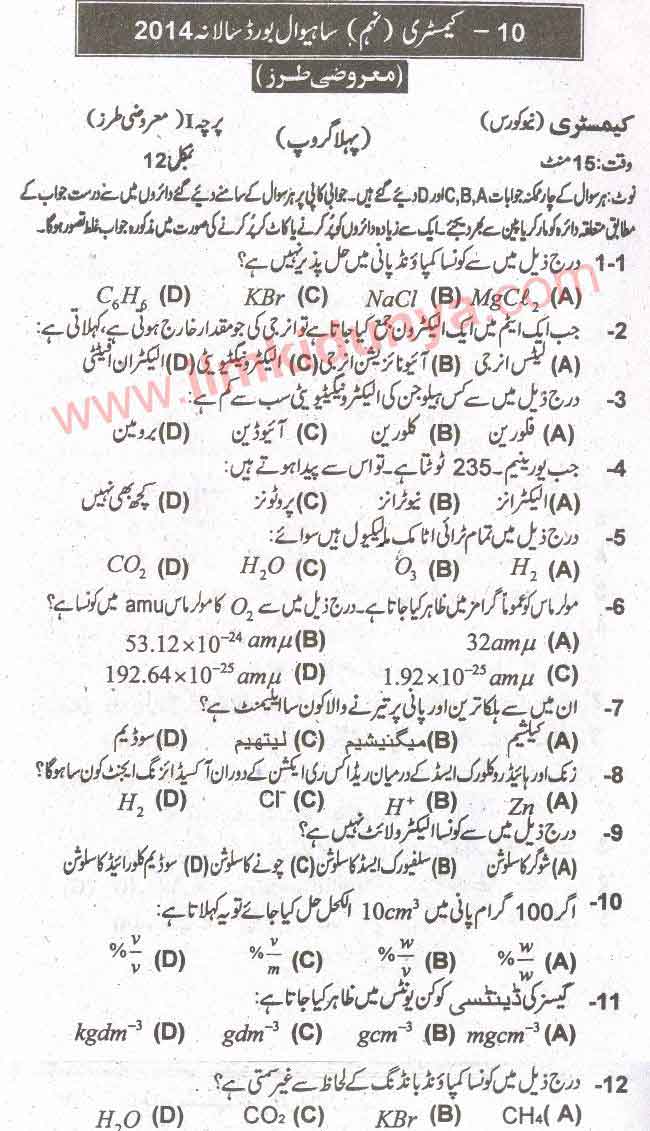 10 - کیمسٹری (نہم) ساہیوال بورڈ سالانہ 2014
(معروضی طرز)
کیمسٹری (نیو کورس) پرچہ I (معروضی طرز)
(پہلا گروپ)
وقت: 15 منٹ نمبر کل: 12
نوٹ: ہر سوال کے چار ممکنہ جوابات C,B,A اور D دیئے گئے ہیں۔ جوابی کاپی پر ہر سوال کے سامنے دیئے گئے دائروں میں سے درست جواب کے
مطابق متعلقہ دائرہ کو مارکر یا پین سے بھر دیجئے۔ ایک سے زیادہ دائروں کو پُر کرنے یا کاٹ کر پُر کرنے کی صورت میں مذکورہ جواب غلط تصور ہوگا۔
1-1 درج ذیل میں سے کونسا کمپاؤنڈ پانی میں حل پذیر نہیں ہے؟
(A) MgCℓ₂ (B) NaCl (C) KBr (D) C₆H₆
2- جب ایک ایٹم میں ایک الیکٹرون جمع کیا جاتا ہے تو انرجی کی جو مقدار خارج ہوتی ہے، کہلاتی ہے:
(A) لیٹس انرجی (B) آئیونائزیشن انرجی (C) الیکٹرونیگٹیویٹی (D) الیکٹران افینٹی
3- درج ذیل میں سے کس ہیلوجن کی الیکٹرونیگٹیویٹی سب سے کم ہے:
(A) فلورین (B) کلورین (C) آئیوڈین (D) برومین
4- جب یورینیم۔235 ٹوٹتا ہے۔ تو اس سے پیدا ہوتے ہیں:
(A) الیکٹرانز (B) نیوٹرانز (C) پروٹونز (D) کچھ بھی نہیں
5- درج ذیل میں تمام ٹرائی اٹامک مالیکیول ہیں سوائے:
(A) H₂ (B) O₃ (C) H₂O (D) CO₂
6- مولر ماس کو عموماً گرامز میں ظاہر کیا جاتا ہے۔ درج ذیل میں سے O₂ کا مولر ماس amu میں کونسا ہے؟
(A) 32amμ (B) 53.12×10⁻²⁴ amμ
(C) 1.92×10⁻²⁵ amμ (D) 192.64×10⁻²⁵ amμ
7- ان میں سے ہلکا ترین اور پانی پر تیرنے والا کون سا ایلیمنٹ ہے؟
(A) کیلشیم (B) میگنیشیم (C) لیتھیم (D) سوڈیم
8- زنک اور ہائیڈروکلورک ایسڈ کے درمیان ریڈاکس ری ایکشن کے دوران آکسیڈائزنگ ایجنٹ کون سا ہوگا؟
(A) Zn (B) H⁺ (C) Cl⁻ (D) H₂
9- درج ذیل میں سے کونسا الیکٹرولائٹ نہیں ہے؟
(A) شوگر کا سلوشن (B) سلفیورک ایسڈ کا سلوشن (C) چونے کا سلوشن (D) سوڈیم کلورائیڈ کا سلوشن
10- اگر 100 گرام پانی میں 10cm³ الکحل حل کیا جائے تو یہ کہلاتا ہے:
(A) %w/w (B) %w/v (C) %v/m (D) %v/v
11- گیسز کی ڈینسٹی کو کن یونٹس میں ظاہر کیا جاتا ہے:
(A) mgcm⁻³ (B) gcm⁻³ (C) gdm⁻³ (D) kgdm⁻³
12- درج ذیل میں کونسا کمپاؤنڈ بانڈنگ کے لحاظ سے غیر سمتی ہے؟
(A) CH4 (B) KBr (C) CO₂ (D) H₂O
www.ilmkidunya.com